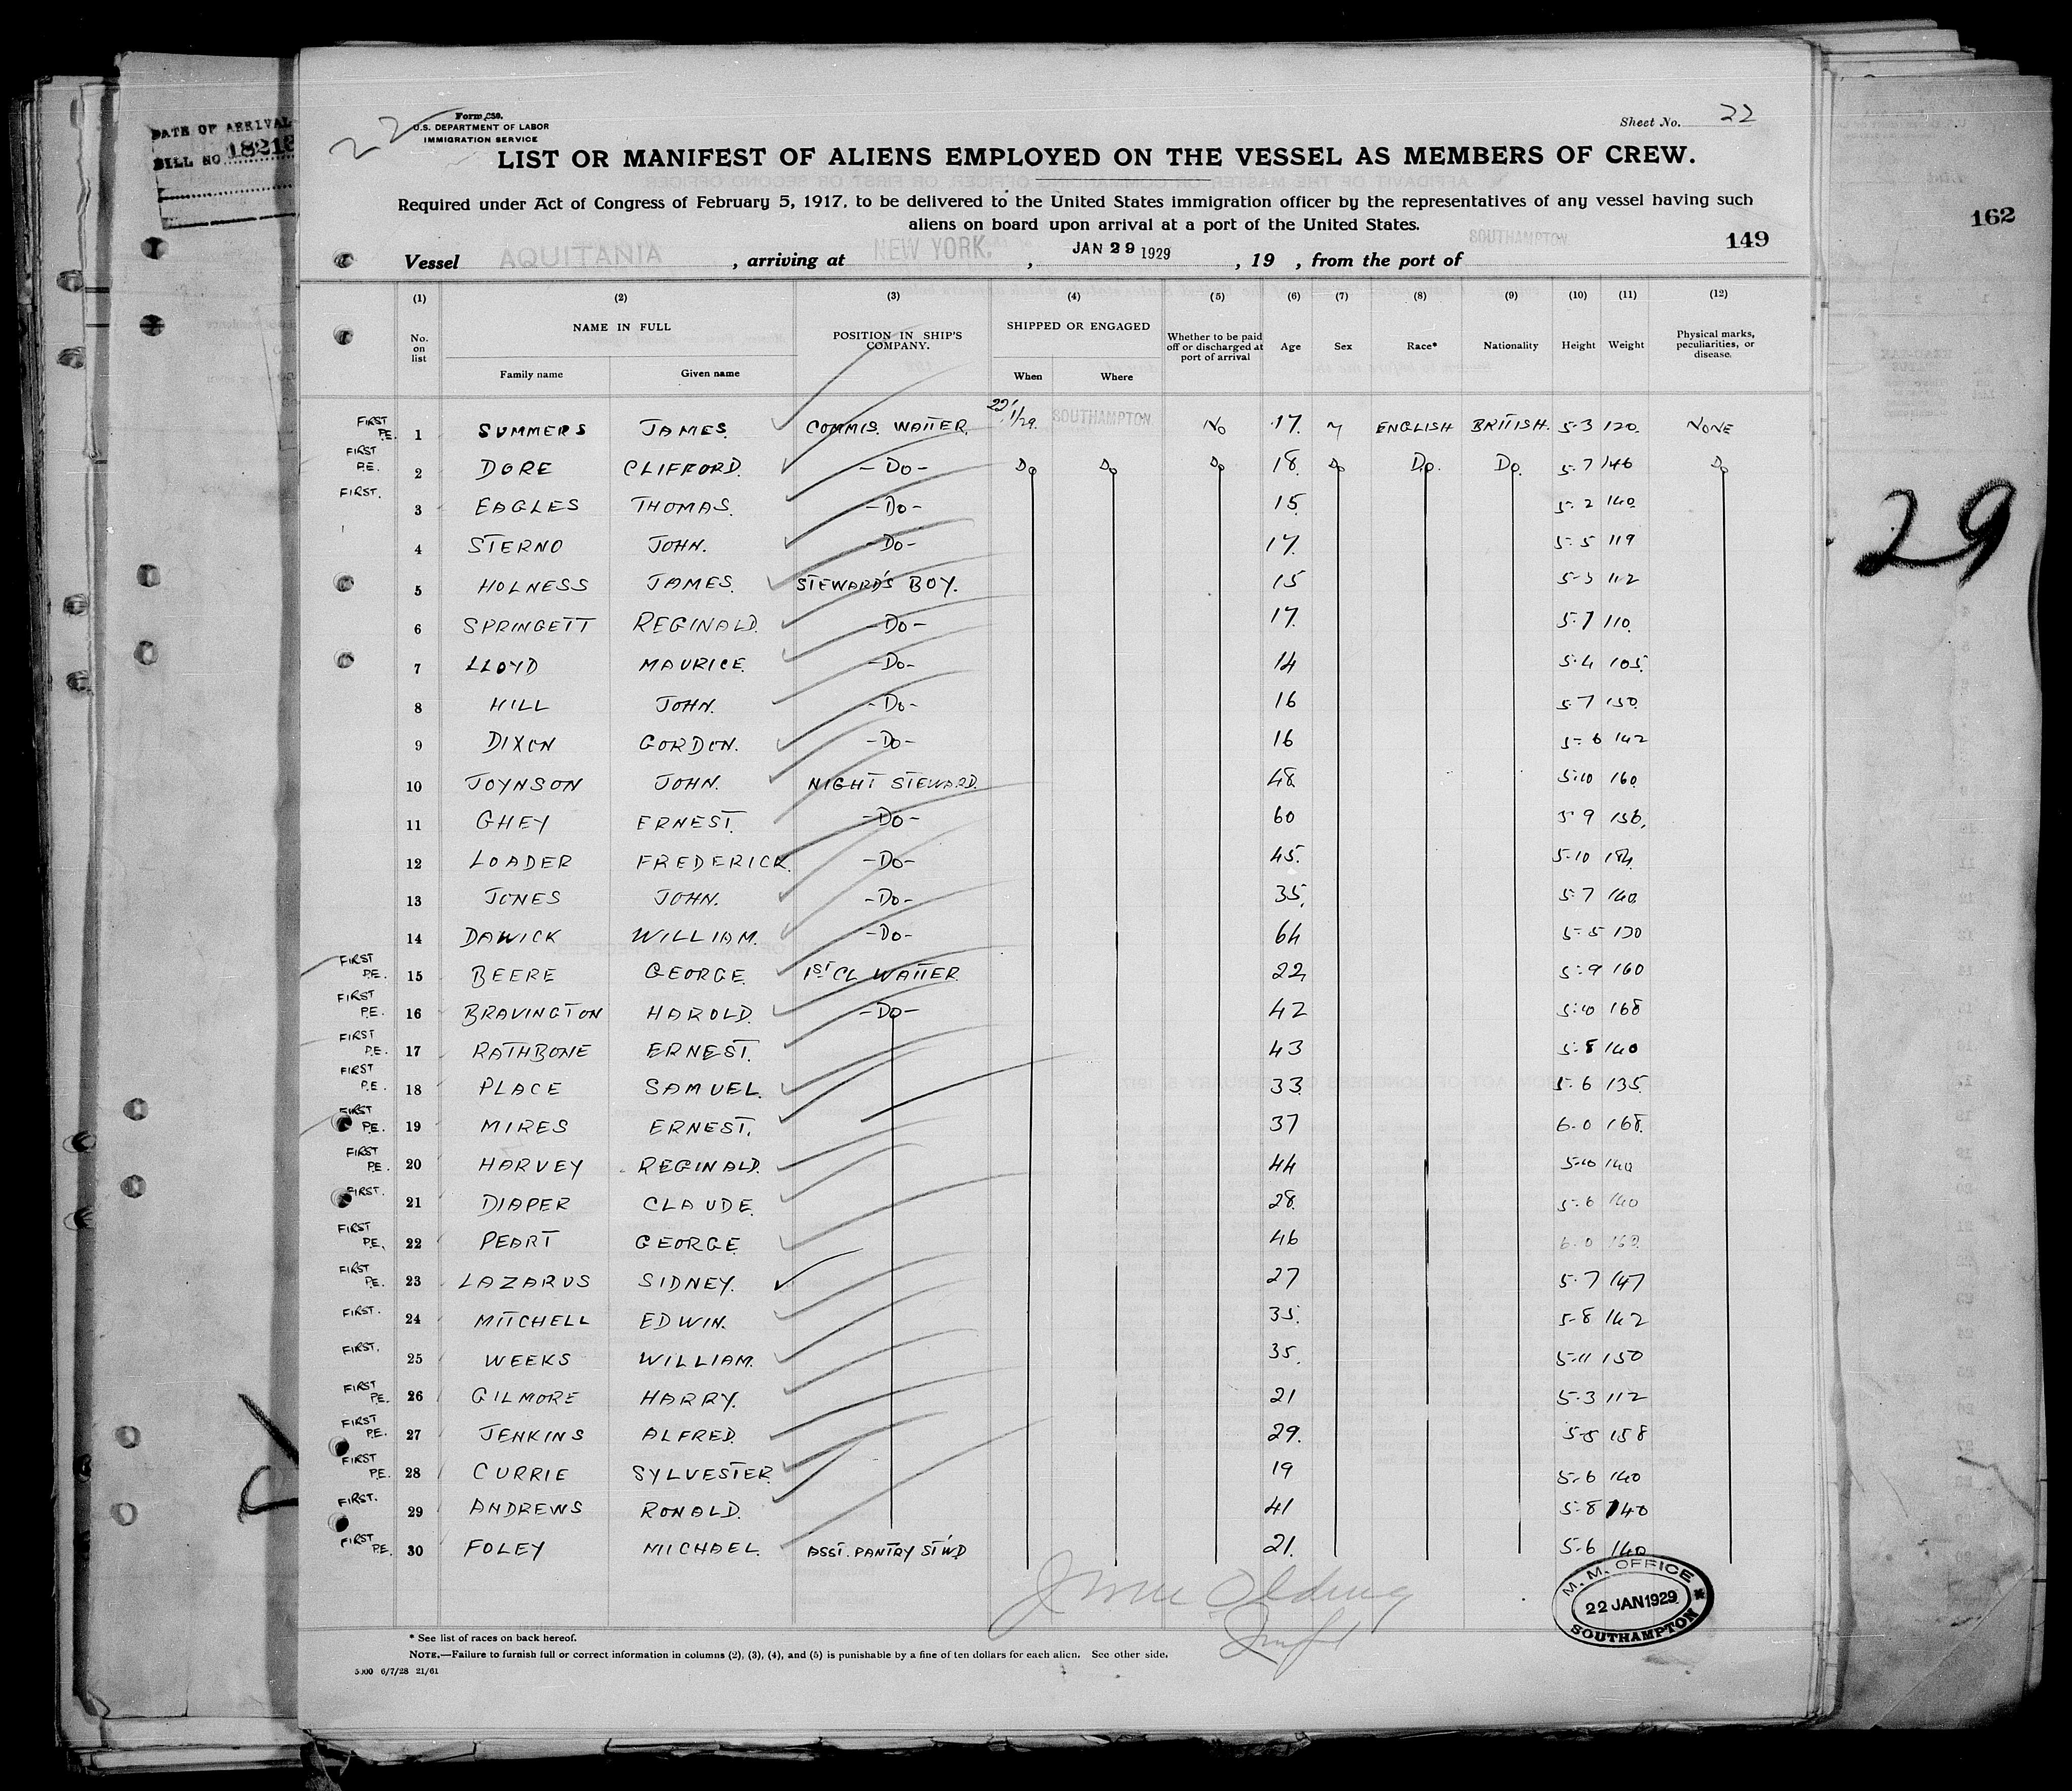 DATE OF ARRIVAL
BILL NO. 18216
22
Form 680.
U.S. DEPARTMENT OF LABOR
IMMIGRATION SERVICE
Sheet No. 22
LIST OR MANIFEST OF ALIENS EMPLOYED ON THE VESSEL AS MEMBERS OF CREW.
Required under Act of Congress of February 5, 1917, to be delivered to the United States immigration officer by the representatives of any vessel having such
aliens on board upon arrival at a port of the United States.
149
162
29
Vessel AQUITANIA, arriving at NEW YORK, JAN 29 1929, 19 , from the port of SOUTHAMPTON
(1) (2) (3) (4) (5) (6) (7) (8) (9) (10) (11) (12)
No. on list NAME IN FULL Family name Given name POSITION IN SHIP'S COMPANY. SHIPPED OR ENGAGED When Where Whether to be paid off or discharged at port of arrival Age Sex Race* Nationality Height Weight Physical marks, peculiarities, or disease.
FIRST P.E. 1 SUMMERS JAMES. COMMIS. WAITER. 22/1/29. SOUTHAMPTON No 17. M ENGLISH BRITISH. 5-3 120. NONE
FIRST P.E. 2 DORE CLIFFORD. -Do- Do Do Do 18. Do Do. Do. 5-7 146 Do
FIRST. 3 EAGLES THOMAS. -Do- 15. 5-2 140.
4 STERNO JOHN. -Do- 17. 5-5 119
5 HOLNESS JAMES. STEWARD'S BOY. 15 5-3 112
6 SPRINGETT REGINALD. -Do- 17. 5-7 110.
7 LLOYD MAURICE. -Do- 14 5-4 105.
8 HILL JOHN. -Do- 16 5-7 130.
9 DIXON GORDON. -Do- 16 5-6 142
10 JOYNSON JOHN. NIGHT STEWARD. 48 5-10 160.
11 GHEY ERNEST. -Do- 60 5-9 156.
12 LOADER FREDERICK. -Do- 45. 5-10 184.
13 JONES JOHN. -Do- 35. 5-7 140.
14 DAWICK WILLIAM. -Do- 64 5-5 130
FIRST P.E. 15 BEERE GEORGE. 1ST CL WAITER. 22. 5-9 160
FIRST P.E. 16 BRAVINGTON HAROLD. -Do- 42 5-10 168
FIRST P.E. 17 RATHBONE ERNEST. 43 5-8 140
FIRST P.E. 18 PLACE SAMUEL. 33. 5-6 135.
FIRST P.E. 19 MIRES ERNEST. 37 6-0 168.
FIRST P.E. 20 HARVEY REGINALD. 44 5-10 140
FIRST. 21 DIAPER CLAUDE. 28. 5-6 140
FIRST P.E. 22 PEART GEORGE. 46 6-0
FIRST P.E. 23 LAZARUS SIDNEY. 27 5-7 147
FIRST. 24 MITCHELL EDWIN. 35. 5-8 142
FIRST. 25 WEEKS WILLIAM. 35. 5-11 150
FIRST P.E. 26 GILMORE HARRY. 21 5-3 112
FIRST P.E. 27 JENKINS ALFRED. 29. 5-5 158
FIRST P.E. 28 CURRIE SYLVESTER. 19 5-6 140
FIRST. 29 ANDREWS RONALD. 41 5-8 140
FIRST P.E. 30 FOLEY MICHAEL. ASST. PANTRY STWD 21. 5-6 140
M. M. OFFICE
22 JAN 1929
SOUTHAMPTON
* See list of races on back hereof.
NOTE.—Failure to furnish full or correct information in columns (2), (3), (4), and (5) is punishable by a fine of ten dollars for each alien. See other side.
5000 6/7/28 21/61